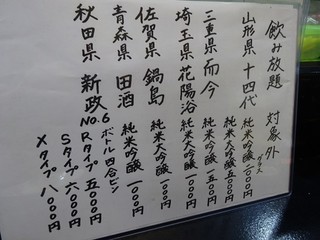 飲み放題 対象外
グラス
山形県 十四代 純米吟醸 二〇〇〇円
純米大吟醸 二五〇〇円
三重県 而今 純米吟醸 一五〇〇円
埼玉県 花陽浴 純米大吟醸 一五〇〇円
佐賀県 鍋島 純米大吟醸 一〇〇〇円
青森県 田酒 純米吟醸 一〇〇〇円
秋田県 新政 No.6 ボトル四合ビン
Rタイプ 五〇〇〇円
Sタイプ 六〇〇〇円
Xタイプ 八〇〇〇円